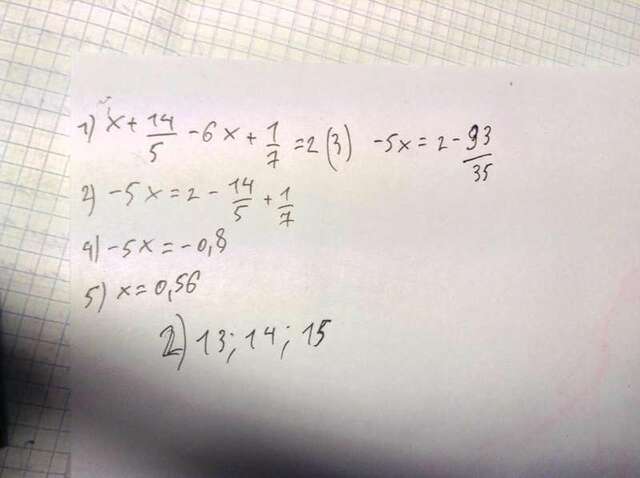 1) x + 14/5 - 6x + 1/7 = 2 (3) -5x = 2 - 93/35
2) -5x = 2 - 14/5 + 1/7
4) -5x = -0,8
5) x = 0,56
2) 13; 14; 15